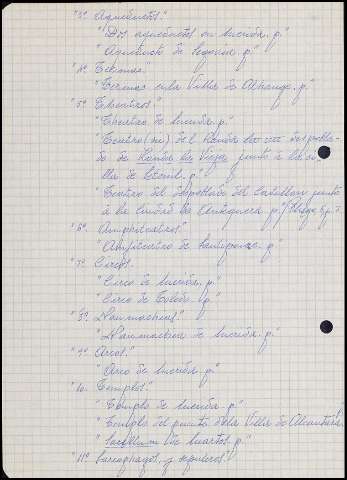 "3º Aqueductos."
"Dos aqueductos en Merida. p."
"Aqueducto de Segovia. p."
"4º Termas."
"Termas en la Villa de Alhange. p."
"5º Theatros."
"Theatro de Merida. p."
"Teatro (sic) de l Ronda despobla-
do de Ronda la Vieja junto a la vi-
lla de Setenil. p."
"Teatro del despoblado del Castellon junto
a la Ciudad de Antequera. p."
"6º Amphiteatros."
"Anfiteatro de Santiponce. p."
"7º Circos."
"Circo de Merida. p."
"Circo de Toledo. p."
"8º Naumachias."
"Naumachia de Merida. p."
"9º Arcos."
"Arco de Merida. p."
"10. Templos."
"Templo de Merida. p."
"Templo del puente de la Villa de Alcantara."
"Sacellum de Martos. p."
"11º Sarcophagos, y sepulcros."